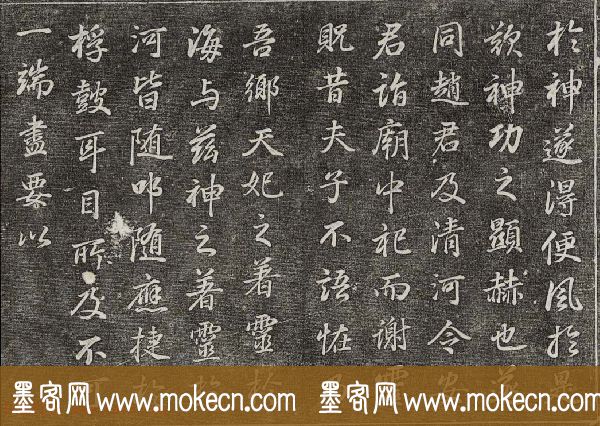 於神遂得便風於是
歎神功之顯赫也
同趙君及清河令
君詣廟中祀而謝
貺昔夫子不語恠
吾鄉天妃之著靈於
海与茲神之著靈於
河皆随叩随應捷於
桴鼓耳目所及不可
一端盡要以
墨客网 www.mokecn.com 墨客网 www.mokecn.com